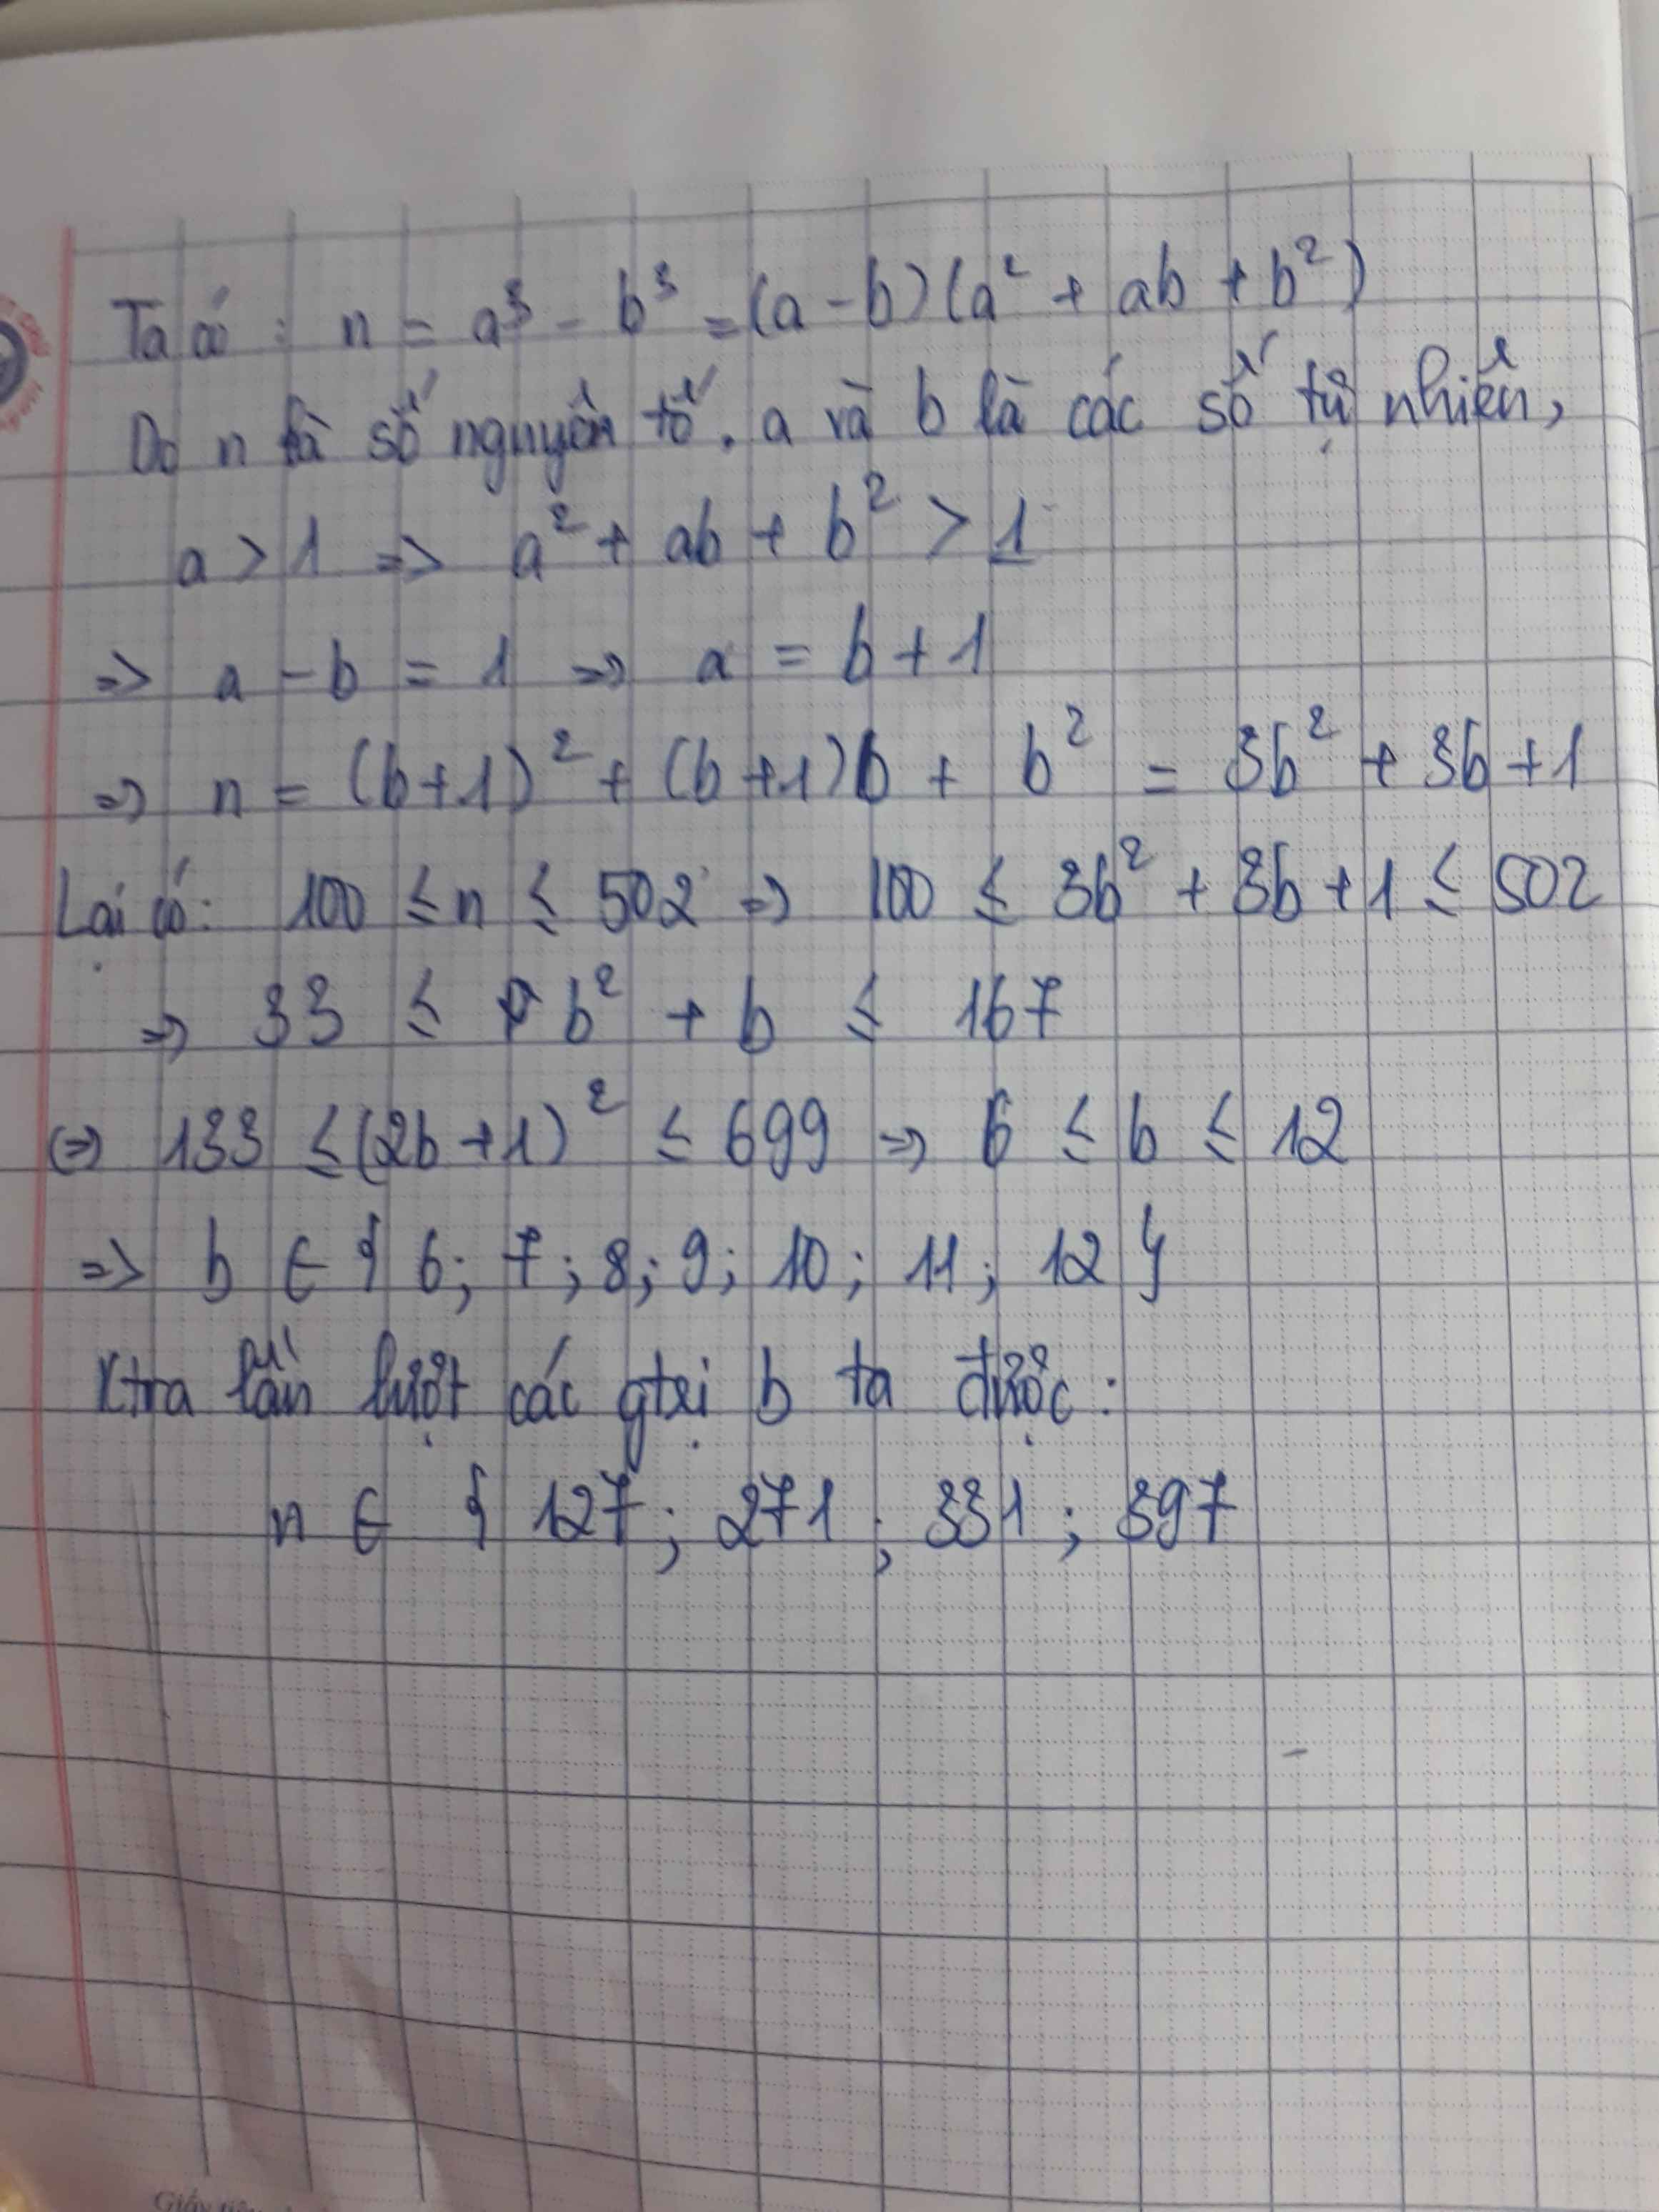 Ta có : n = a³ - b³ = (a - b)(a² + ab + b²)
Do n là số nguyên tố. a và b là các số tự nhiên,
a > 1 => a² + ab + b² > 1
=> a - b = 1 => a = b + 1
=> n = (b+1)² + (b+1)b + b² = 3b² + 3b + 1
Lại có: 100 ≤ n ≤ 502 => 100 ≤ 3b² + 3b + 1 ≤ 502
=> 33 ≤ b² + b ≤ 167
<=> 133 ≤ (2b+1)² ≤ 699 => 6 ≤ b ≤ 12
=> b ∈ { 6; 7; 8; 9; 10; 11; 12 }
Ktra lần lượt các gtrị b ta được:
n ∈ { 127; 271; 331; 397